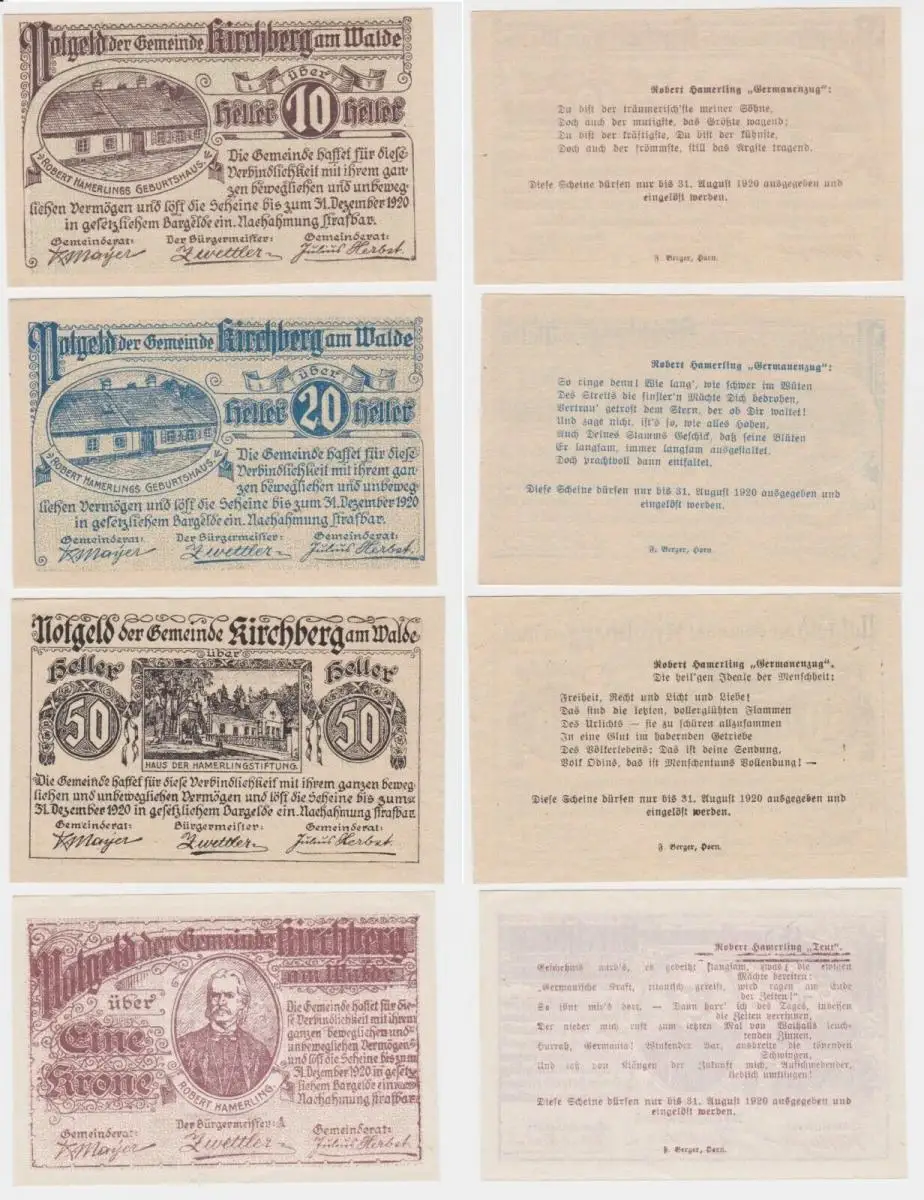 Notgeld der Gemeinde Kirchberg am Walde
über
Heller 10 Heller
ROBERT HAMERLINGS GEBURTSHAUS.
Die Gemeinde haftet für diese
Verbindlichkeit mit ihrem gan-
zen beweglichen und unbeweg-
lichen Vermögen und löst die Scheine bis zum 31. Dezember 1920
in gesetzlichem Bargelde ein. Nachahmung strafbar.
Gemeinderat: Der Bürgermeister: Gemeinderat:
K Mayer Zwettler Julius Herbst
Robert Hamerling „Germanenzug“:
Du bist der träumerisch'ste meiner Söhne,
Doch auch der mutigste, das Größte wagend;
Du bist der kräftigste, Du bist der kühnste,
Doch auch der frömmste, still das Ärgste tragend.
Diese Scheine dürfen nur bis 31. August 1920 ausgegeben und
eingelöst werden.
F. Berger, Horn.
Notgeld der Gemeinde Kirchberg am Walde
über
Heller 20 Heller
ROBERT HAMERLINGS GEBURTSHAUS.
Die Gemeinde haftet für diese
Verbindlichkeit mit ihrem gan-
zen beweglichen und unbeweg-
lichen Vermögen und löst die Scheine bis zum 31. Dezember 1920
in gesetzlichem Bargelde ein. Nachahmung strafbar.
Gemeinderat: Der Bürgermeister: Gemeinderat:
K Mayer Zwettler Julius Herbst
Robert Hamerling „Germanenzug“:
So ringe denn! Wie lang', wie schwer im Wüten
Des Streits die finster'n Mächte Dich bedrohen,
Vertrau' getrost dem Stern, der ob Dir waltet!
Und zage nicht, ist's so, wie alles Hohen,
Auch Deines Stamms Geschick, daß seine Blüten
Er langsam, immer langsam ausgestaltet.
Doch prachtvoll dann entfaltet.
Diese Scheine dürfen nur bis 31. August 1920 ausgegeben und
eingelöst werden.
F. Berger, Horn.
Notgeld der Gemeinde Kirchberg am Walde
über
Heller Heller
50 50
HAUS DER HAMERLINGSTIFTUNG.
Die Gemeinde haftet für diese Verbindlichkeit mit ihrem ganzen beweg-
lichen und unbeweglichen Vermögen und löst die Scheine bis zum
31. Dezember 1920 in gesetzlichem Bargelde ein. Nachahmung strafbar.
Gemeinderat: Bürgermeister: Gemeinderat:
K Mayer Zwettler Julius Herbst
Robert Hamerling „Germanenzug“.
Die heil'gen Ideale der Menschheit:
Freiheit, Recht und Licht und Liebe!
Das sind die letzten, vollerglühten Flammen
Des Urlichts — sie zu schüren allzusammen
In eine Glut im hadernden Getriebe
Des Völkerlebens: Das ist deine Sendung,
Volk Odins, das ist Menschentums Vollendung! —
Diese Scheine dürfen nur bis 31. August 1920 ausgegeben und
eingelöst werden.
F. Berger, Horn.
Notgeld der Gemeinde Kirchberg
am Walde
über
Eine
Krone
ROBERT HAMERLING.
Die Gemeinde haftet für die-
se Verbindlichkeit mit ihrem
ganzen beweglichen und
unbeweglichen Vermögen
und löst die Scheine bis zum
31. Dezember 1920 in gesetz-
lichem Bargelde ein.
Nachahmung strafbar.
Gemeinderat: Der Bürgermeister: Gemeinderat:
K Mayer Zwettler Julius Herbst
Robert Hamerling „Teut“.
Geheimnis ward's, es gedeiht langsam, was die ewigen
Mächte bereiten:
„Germanische Kraft, wird ragen am Ende
der Zeiten!“ —
So tönt mir's dort. — Dann harr' ich des Tages, indessen
die Zeiten verrinnen,
Der nieder mich ruft zum letzten Mal von Walhalls leuch-
tenden Zinnen,
Hurrah, Germania! Winkender Aar, ausbreite die tönenden
Schwingen,
Und laß von Klängen der Zukunft mich, Aufschwebender,
lieblich umklingen!
Diese Scheine dürfen nur bis 31. August 1920 ausgegeben und
eingelöst werden.
F. Berger, Horn.